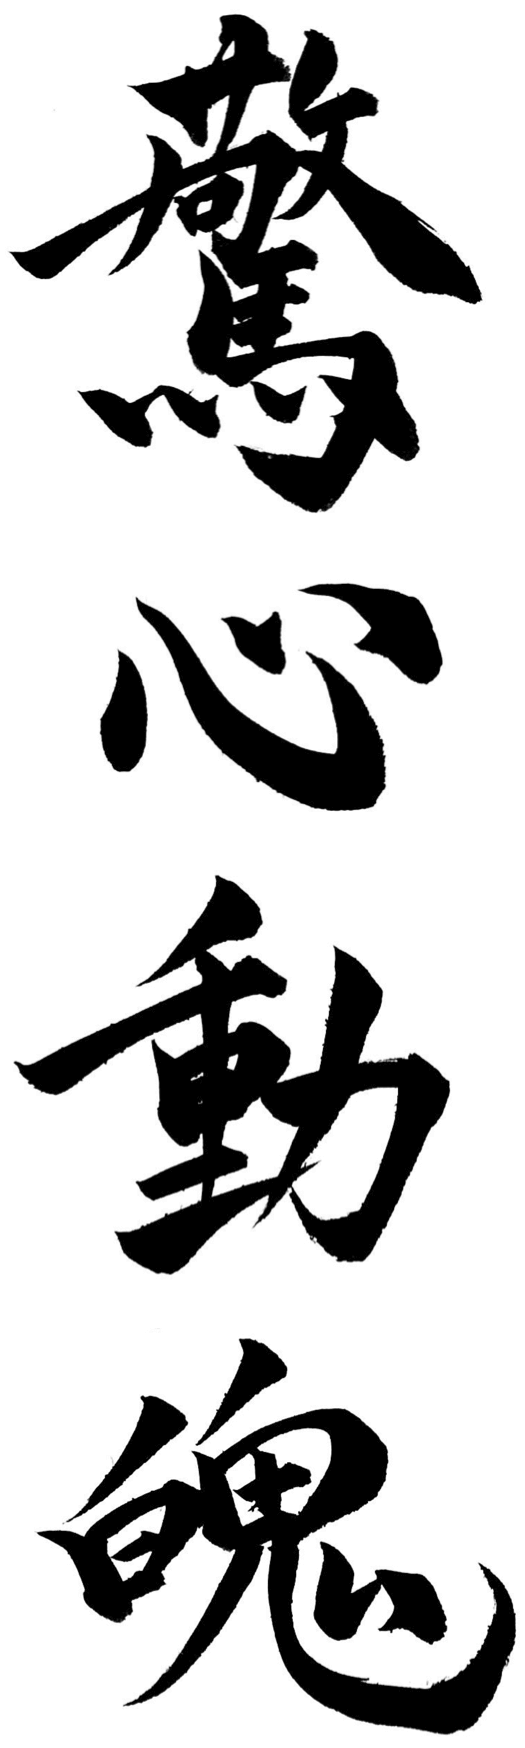 驚心動魄